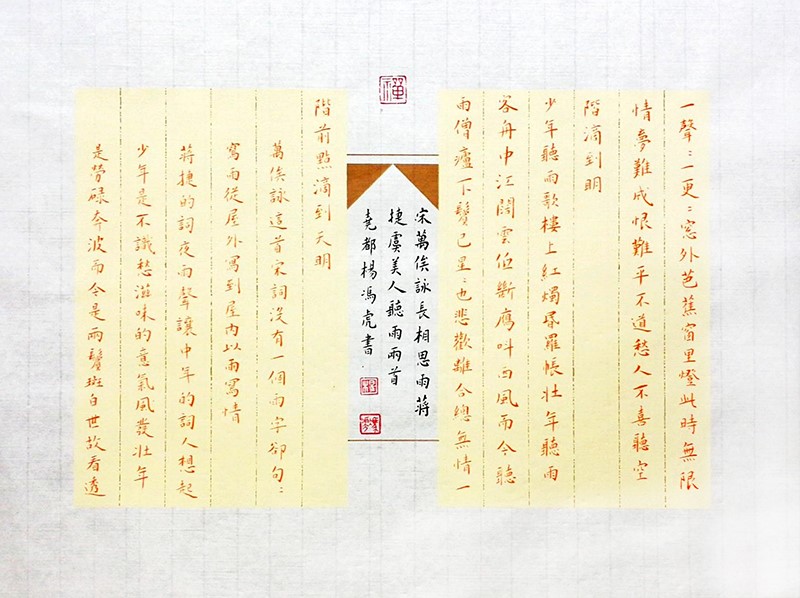 一聲〻一更〻窓外芭蕉窗里燈此時無限
情夢難成恨難平不道愁人不喜聽空
階滴到明
少年聽雨歌樓上紅燭昏羅帳壯年聽雨
客舟中江闊雲低斷鴈叫西風而今聽
雨僧廬下鬢已星〻也悲歡離合總無情一
禪
宋萬俟詠長相思雨蔣
捷虞美人聽雨兩首
堯都楊馮虎書
階前點滴到天明
萬俟詠這首宋詞沒有一個雨字卻句〻
寫雨從屋外寫到屋内以雨寫情
蔣捷的詞夜雨聲讓中年的詞人想起
少年是不識愁滋味的意氣風發壯年
是勞碌奔波而今是兩鬢斑白世故看透